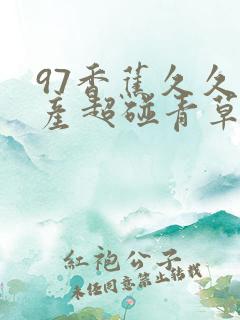 97香蕉久久
産超碰青草
紅袍公子
未經同意禁止轉載